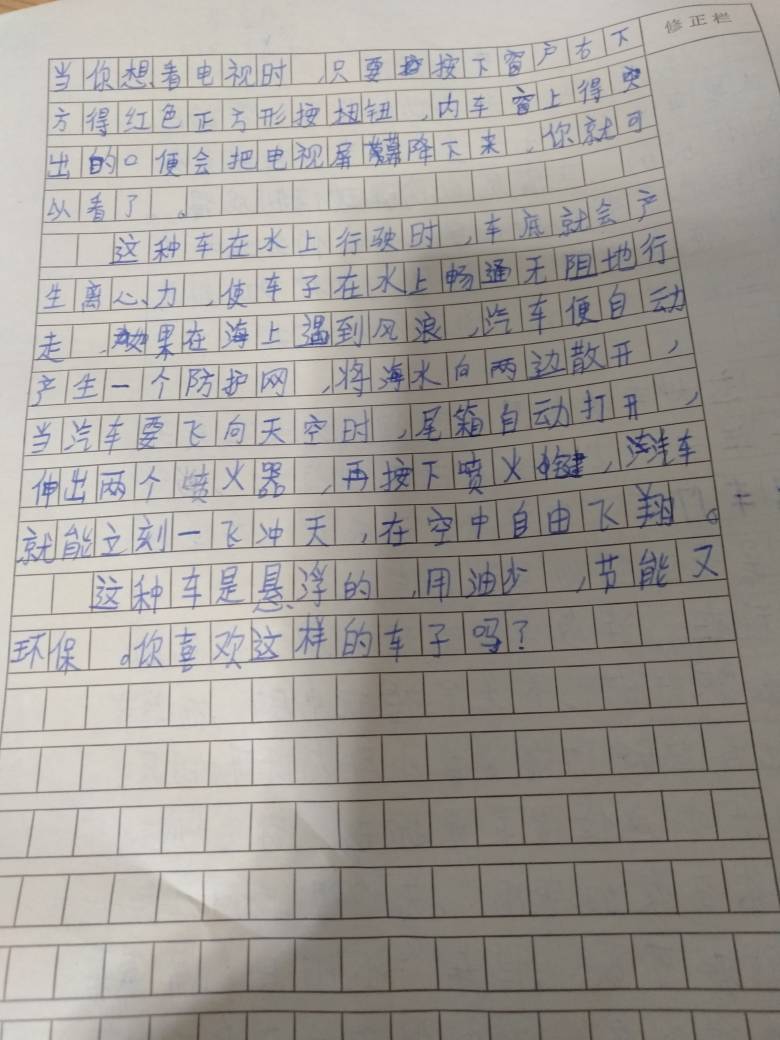 修正栏
当你想看电视时，只要按下窗户右下
方得红色正方形按扭钮，内车窗上得突
出的。便会把电视屏幕降下来，你就可
以看了。
这种车在水上行驶时，车底就会产
生离心力，使车子在水上畅通无阻地行
走，如果在海上遇到风浪，汽车便自动
产生一个防护网，将海水向两边散开，
当汽车要飞向天空时，尾箱自动打开，
伸出两个喷火器，再按下喷火键，汽车
就能立刻一飞冲天，在空中自由飞翔。
这种车是悬浮的，用油少，节能又
环保。你喜欢这样的车子吗？